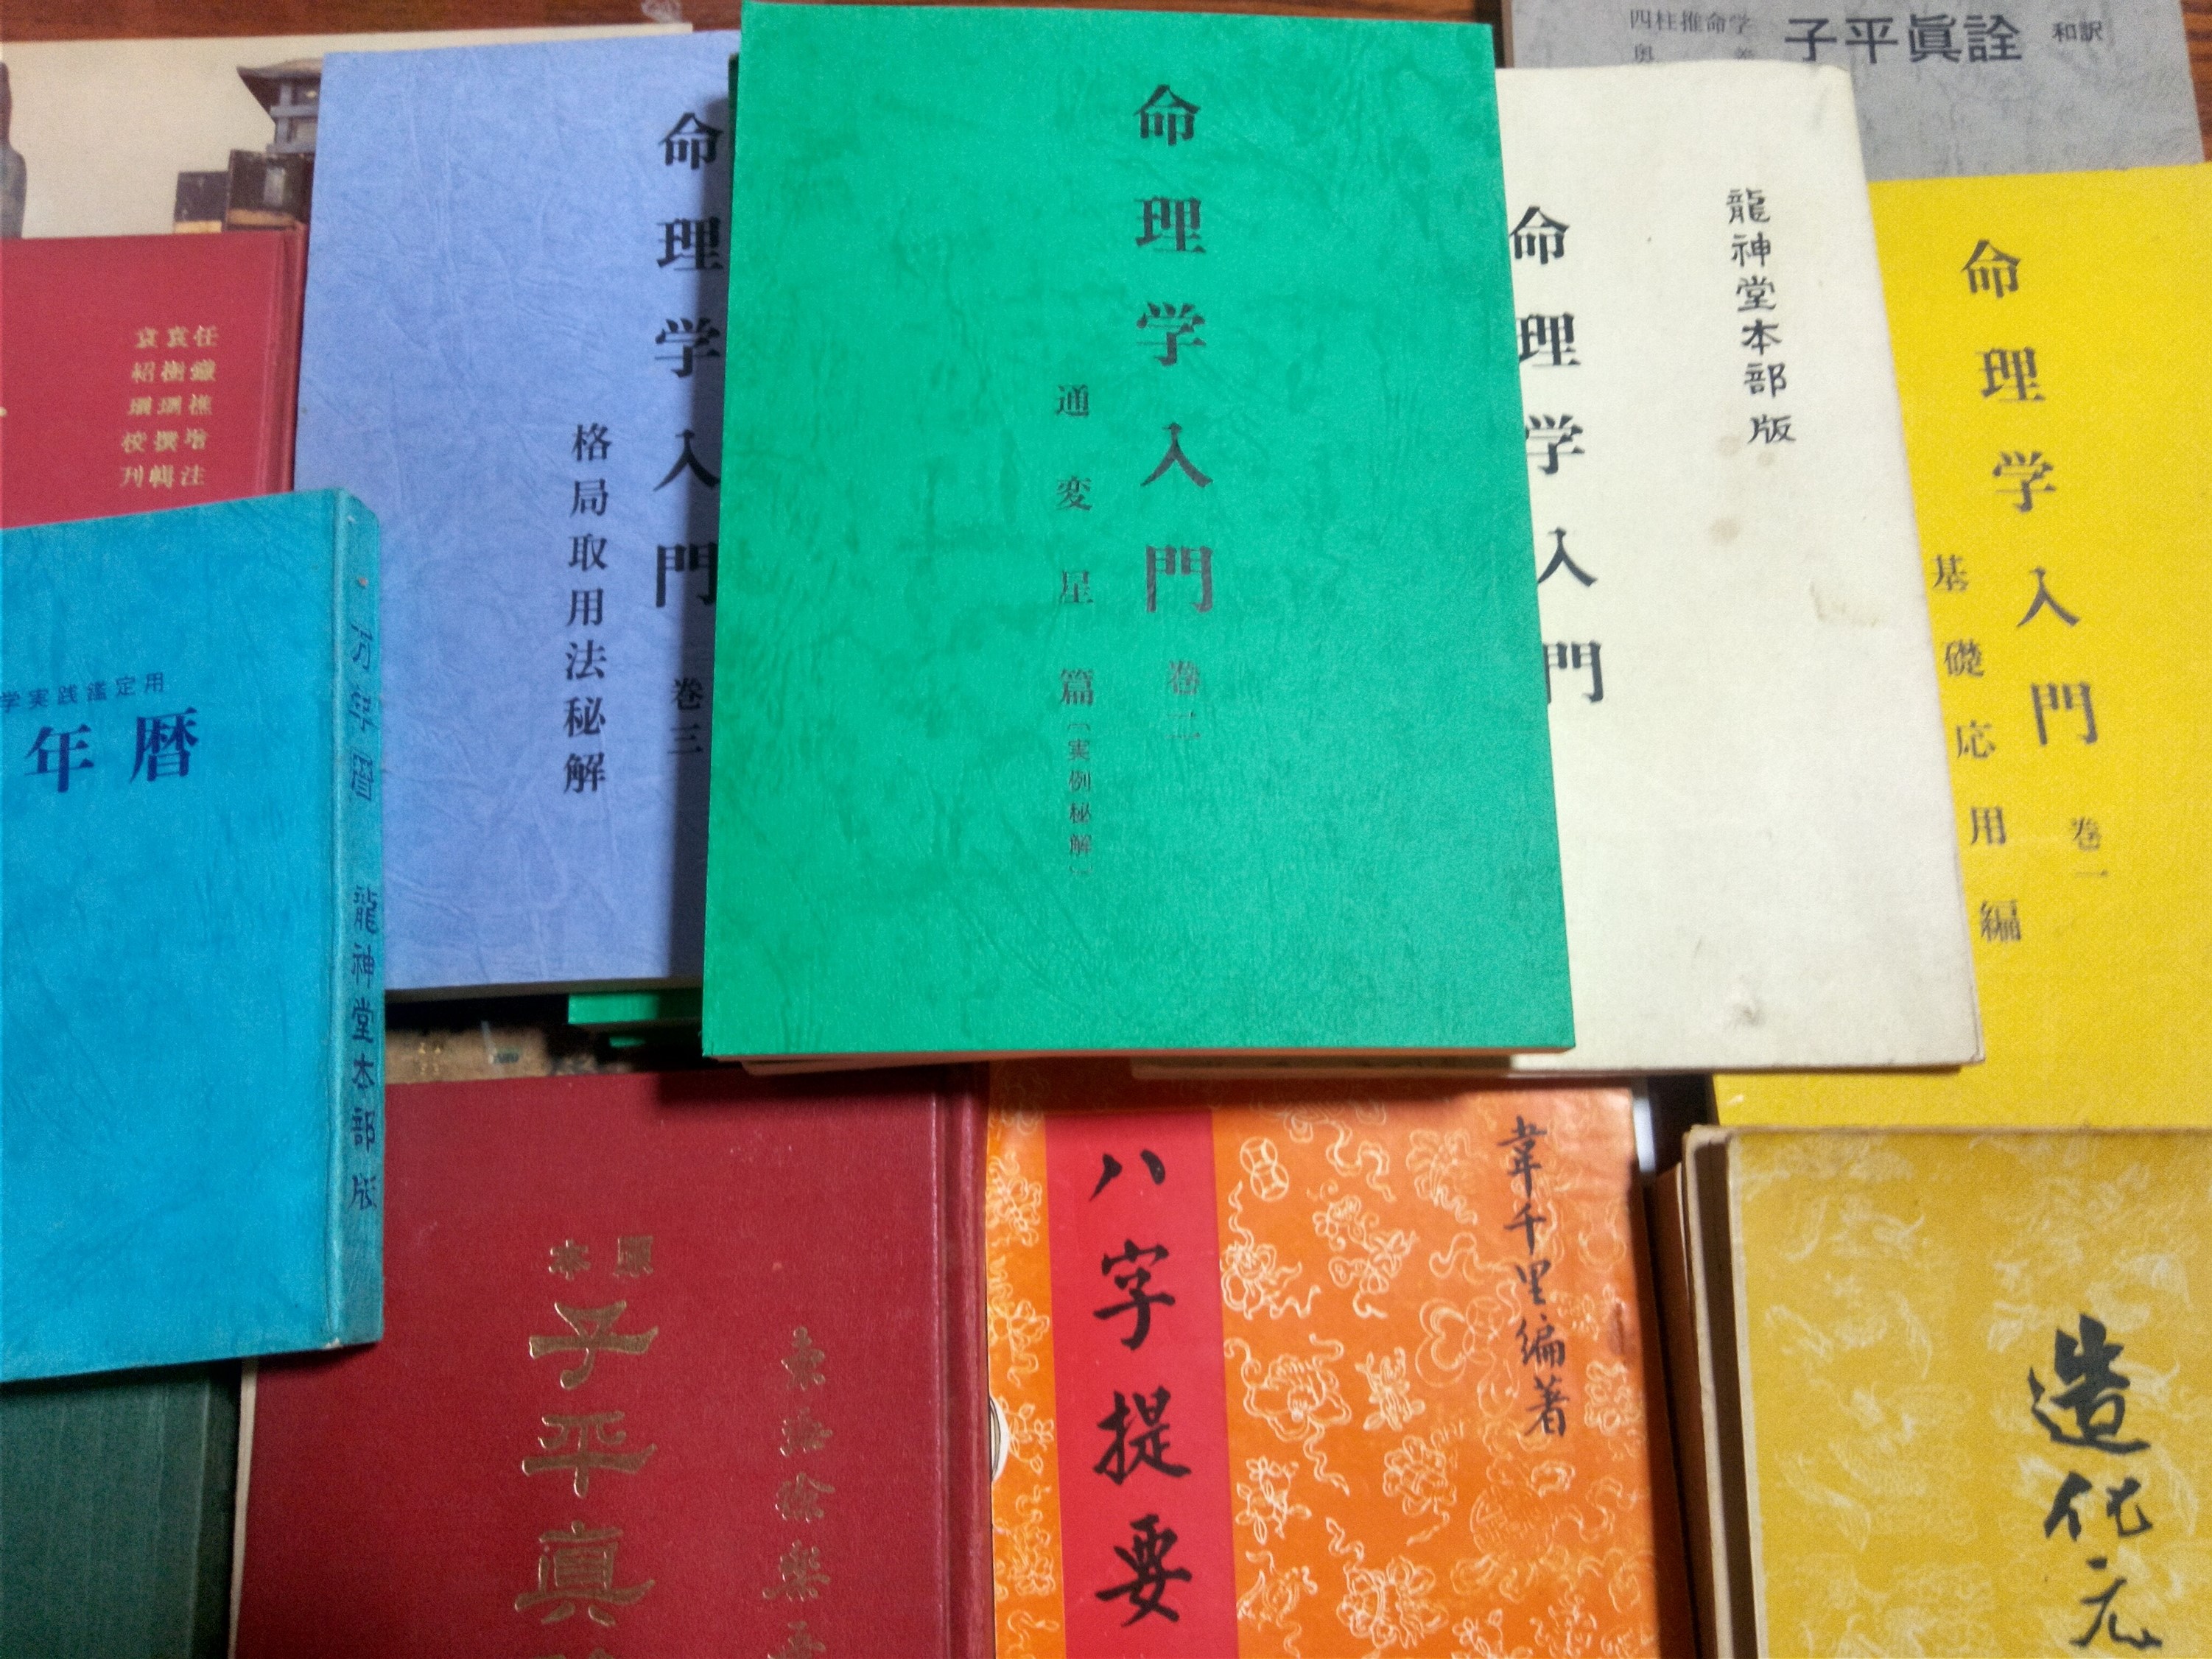 四柱推命学
奥義
子平眞詮
和訳
命理学入門 巻一
基礎応用編
龍神堂本部版
命理学入門
命理学入門 巻二
通変星篇〔実例秘解〕
命理学入門 巻三
格局取用法秘解
任鐵樵增注
袁樹珊撰輯
袁紹珊校刊
学実践鑑定用
年暦
万年暦 龍神堂本部版
原本
子平眞
東海徐樂吾
韋千里编著
八字提要
造化元